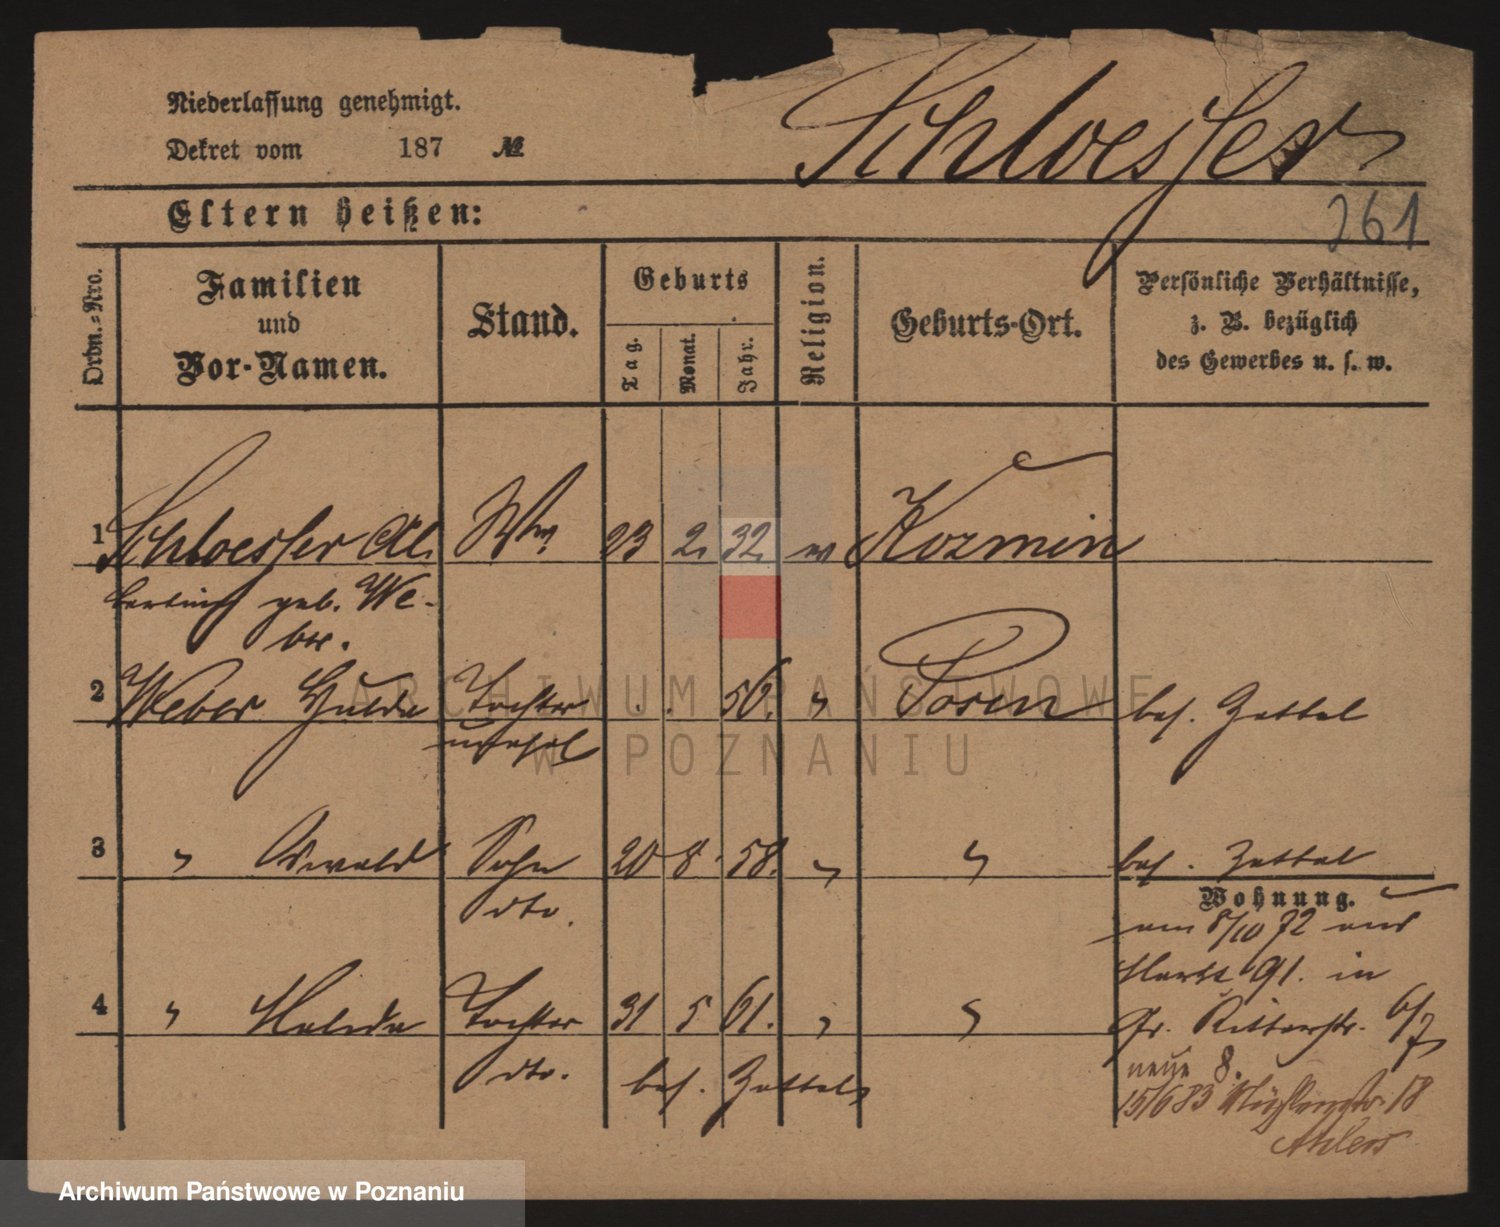 Niederlassung genehmigt.
Dekret vom 187 №
Schloesser
Eltern heißen:
261
Ordn.-Nro.
Familien und Vor-Namen.
Stand.
Geburts
Tag.
Monat.
Jahr.
Religion.
Geburts-Ort.
Persönliche Verhältnisse,
z. B. bezüglich
des Gewerbes u. s. w.
1 Schloesser Al- Ww. 23 2. 32. Kozmin
bertine geb. We-
ber.
2 Weber Hulda Tochter 56. " Posen bes. Zettel
unehel
3 " Oswald Sohn 20 8. 58. " " bes. Zettel
dto.
Wohnung.
am 5/10 72 aus
Markt 91. in
4 " Tochter 31 5 61. " " Gr. Ritterstr. 6/7
dto. bes. Zettel
neue 8.
15/6 83 18
Ahlers
ARCHIWUM PAŃSTWOWE
W POZNANIU
Archiwum Państwowe w Poznaniu